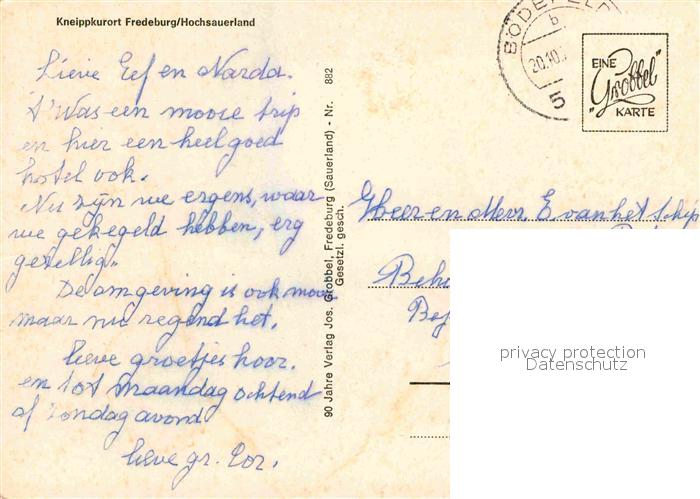 Kneippkurort Fredeburg/Hochsauerland
Lieve Eef en Narda.
't Was een mooie trip
en hier een heel goed
hotel ook.
Nu zijn we ergens, waar
we gekegeld hebben, erg
gezellig.
De omgeving is ook mooi
maar nu regend het.
lieve groetjes hoor.
en tot maandag ochtend
of zondag avond
lieve gr. Cor.
90 Jahre Verlag Jos. Grobbel, Fredeburg (Sauerland) - Nr. 882
Gesetzl. gesch.
BÖDEFELD
b
20.10.
5
EINE
"Grobbel"
KARTE
Heer en Mevr. E van het Schip
privacy protection
Datenschutz